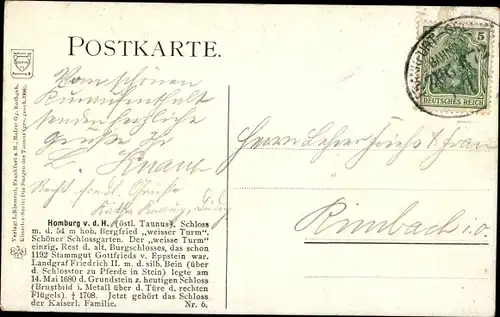 POSTKARTE.
5
DEUTSCHES REICH
Vom schönen
Kuraufenthalt
sendet herzliche
Grüße Ihr
L. Knauf
Herrn Lehrer Friedr. & Frau
Recht freundl. Grüße
Rimbach i. O.
Homburg v. d. H. (östl. Taunus). Schloss
m. d. 54 m hoh. Bergfried „weisser Turm".
Schöner Schlossgarten. Der „weisse Turm"
einzig. Rest d. alt. Burgschlosses, das schon
1192 Stammgut Gottfrieds v. Eppstein war.
Landgraf Friedrich II. m. d. silb. Bein (über
d. Schlosstor zu Pferde in Stein) legte am
14. Mai 1680 d. Grundstein z. heutigen Schloss
(Brustbild i. Metall über d. Türe d. rechten
Flügels). † 1708. Jetzt gehört das Schloss
der Kaiserl. Familie. Nr. 6.